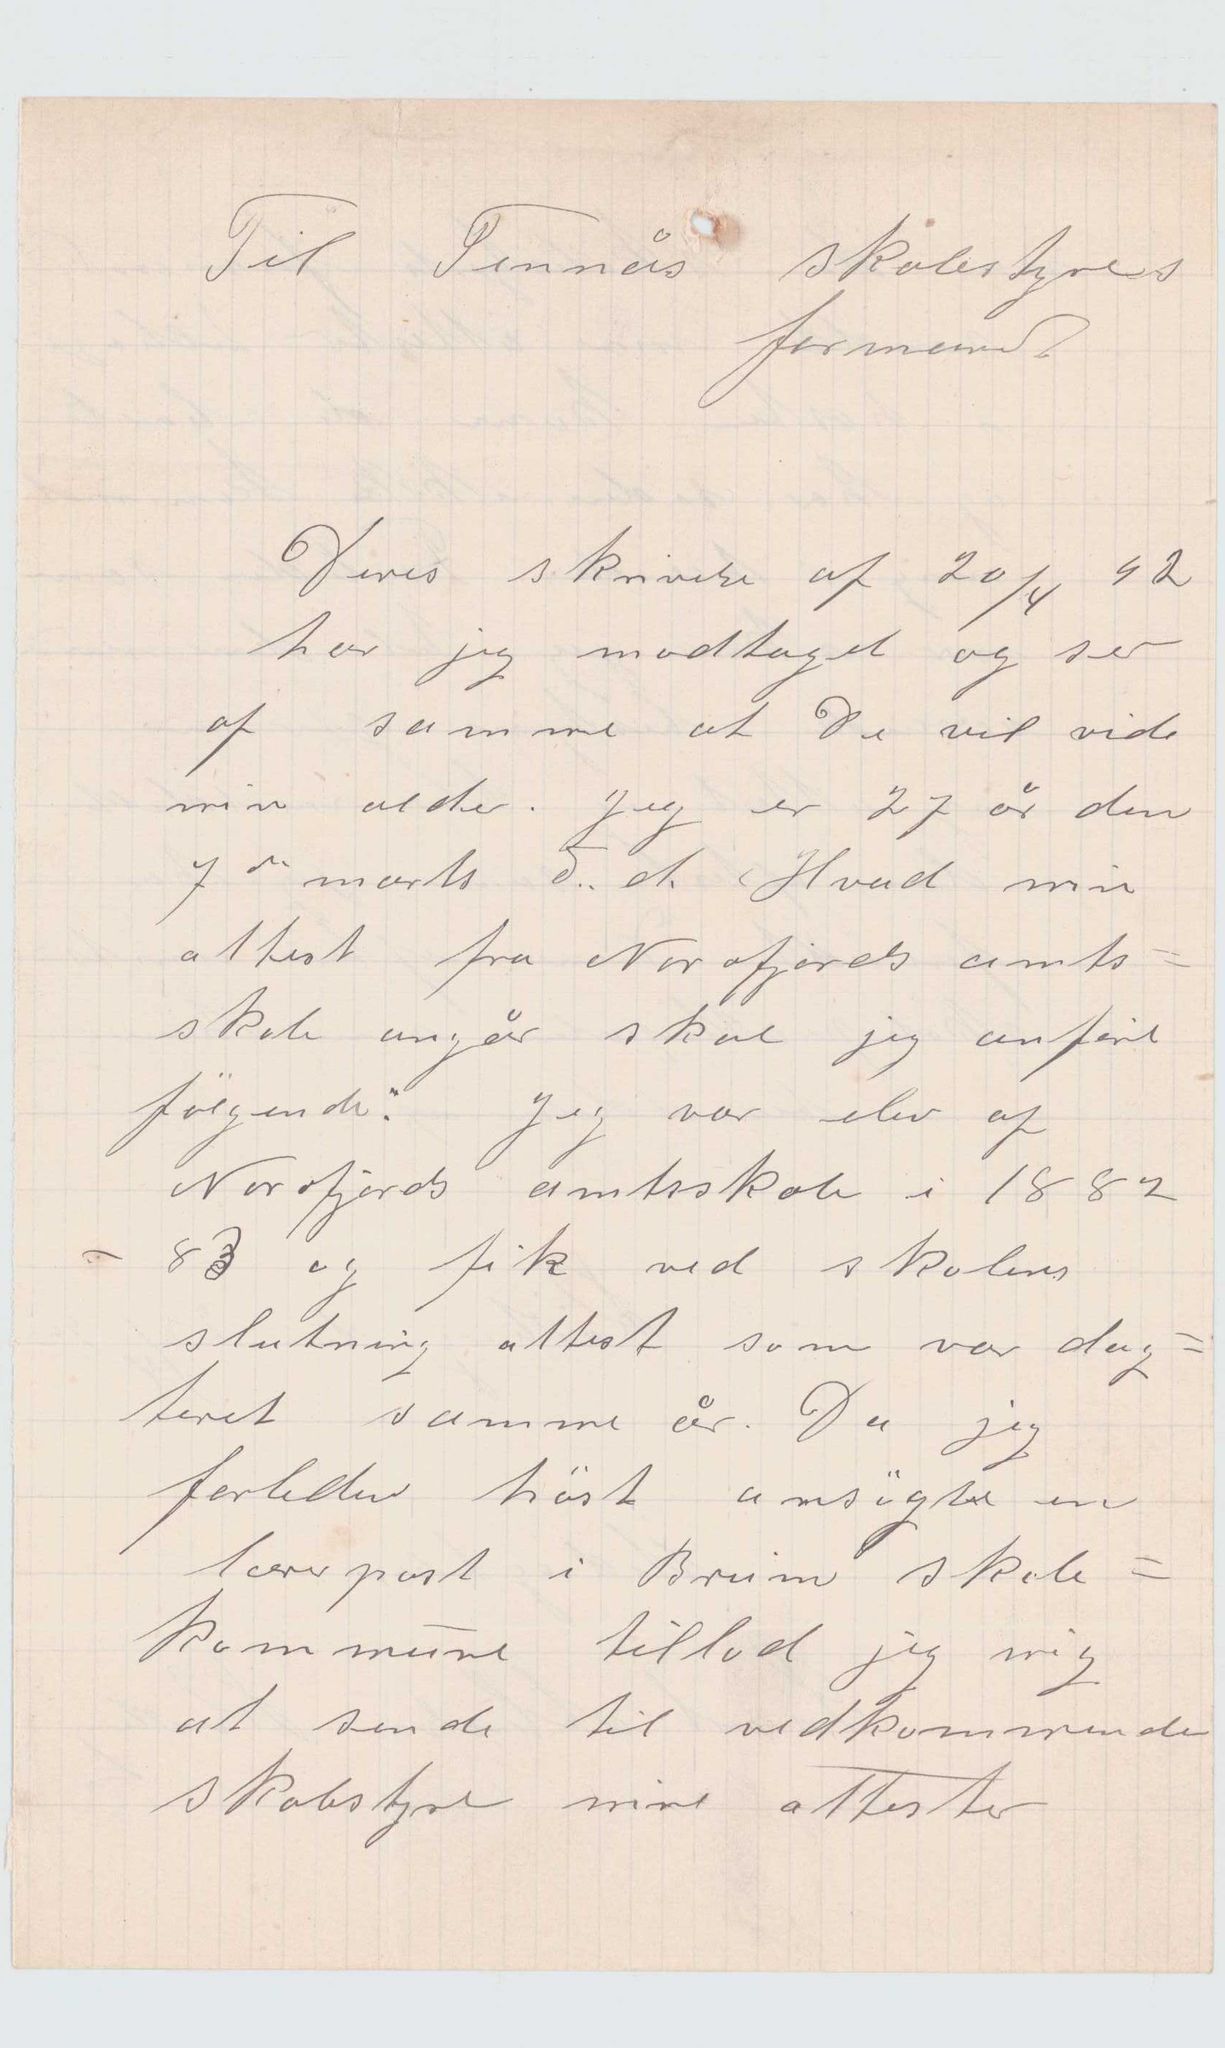 Til Finnås skolestyres
formand
Deres skrivelse af 20/4 92
har jeg modtaget og ser
af samme at De vil vide
min alder. Jeg er 27 år den
7de marts d. å. Hvad min
attest fra Nordfjords amts=
skole angår skal jeg anföre
fölgende: Jeg var elev af
Nordfjords amtsskole i 1882
- 83 og fik ved skolens
slutning attest som var dag=
teret samme år. Da jeg
forleden höst ansögte en
lærerpost i Breim skole=
kommune tillod jeg mig
at sende til vedkommende
skolestyre mine attester